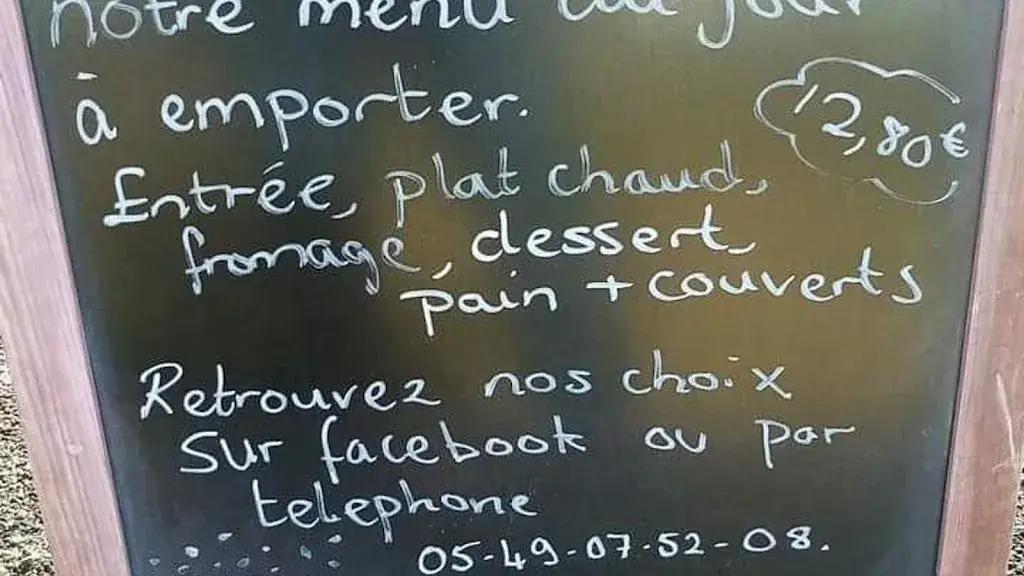 notre menu du jour
à emporter.
12,80€
Entrée, plat chaud,
fromage, dessert,
pain + couverts
Retrouvez nos choix
sur facebook ou par
telephone
05-49-07-52-08.